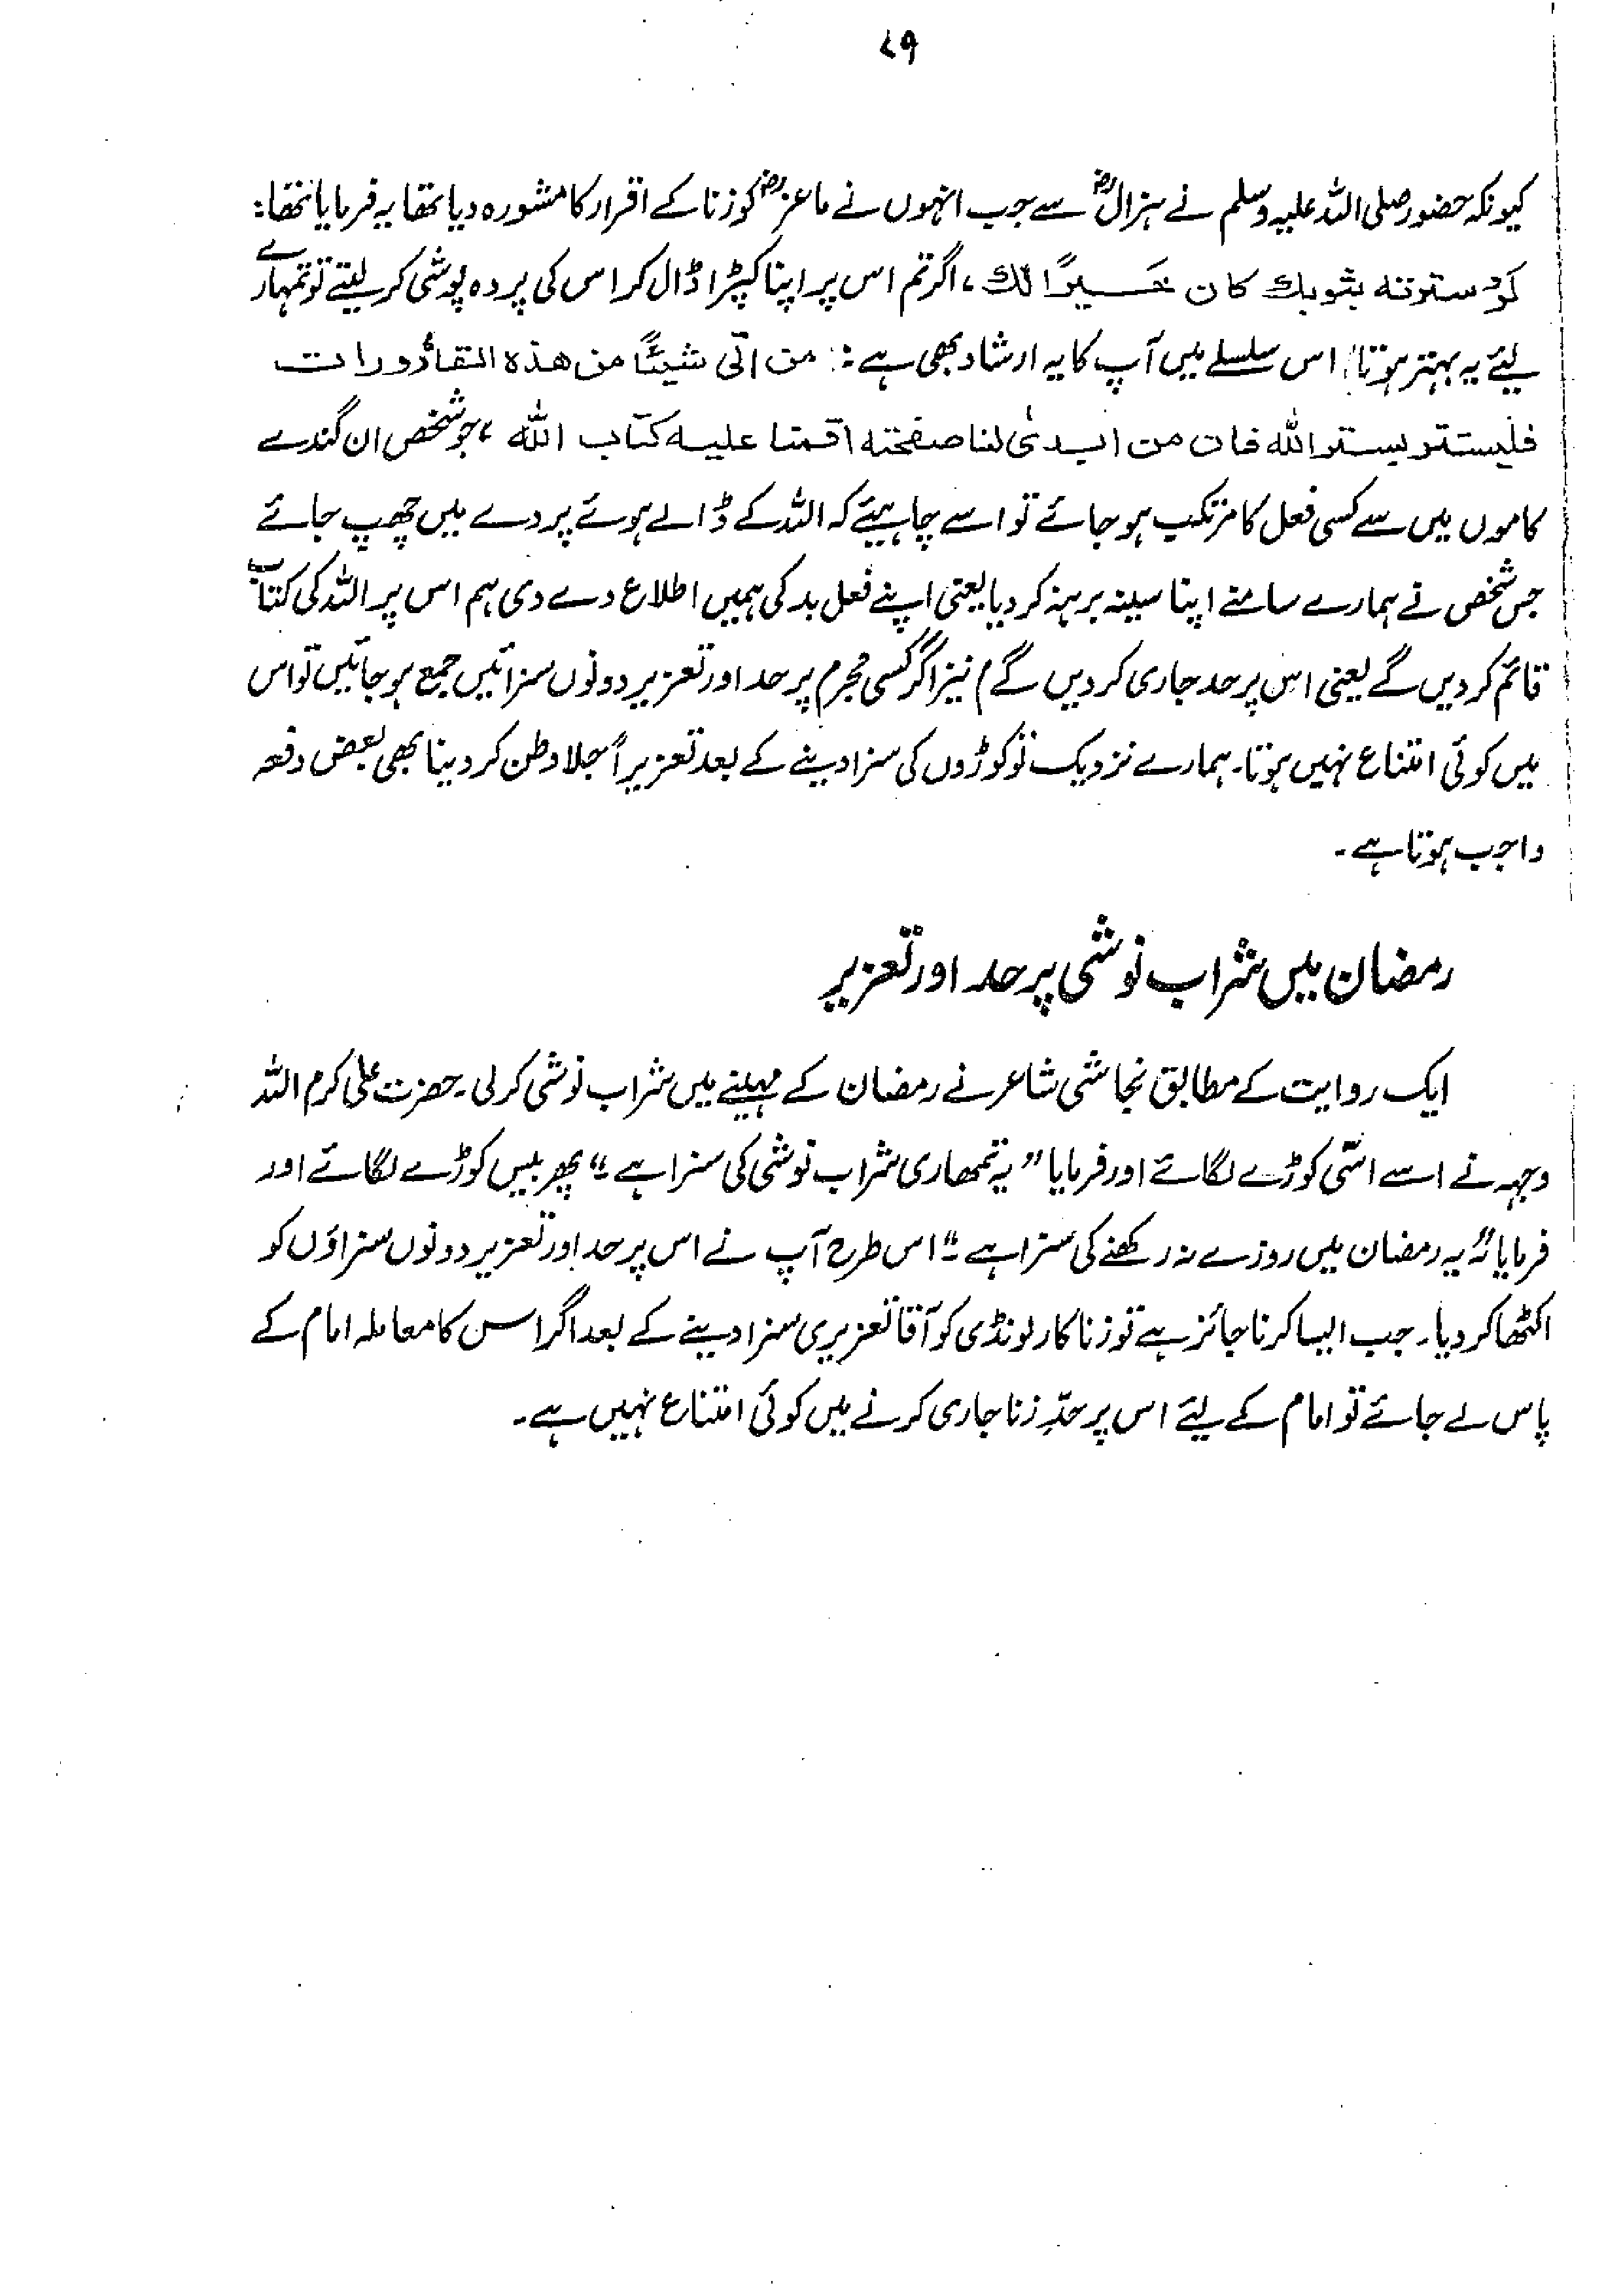 ۷۹
کیونکہ حضور صلی اللہ علیہ وسلم نے ہزالؓ سے جب انہوں نے ماعزؓ کو زنا کے اقرار کا مشورہ دیا تھا یہ فرمایا تھا:
لو سترتہ بثوبك کان خیرًا لك، اگر تم اس پر اپنا کپڑا ڈال کر اس کی پردہ پوشی کر لیتے تو تمہارے
لیئے یہ بہتر ہوتا؛ اس سلسلے میں آپ کا یہ ارشاد بھی ہے: من اتی شیئًا من هذه القاذورات
فلیستتر بستر الله فان من ابدی لنا صفحته اقمنا علیه کتاب الله، جو شخص ان گندے
کاموں میں سے کسی فعل کا مرتکب ہو جائے تو اسے چاہیئے کہ اللہ کے ڈالے ہوئے پردے میں چھپ جائے
جس شخص نے ہمارے سامنے اپنا سینہ برہنہ کر دیا یعنی اپنے فعل بد کی ہمیں اطلاع دے دی ہم اس پر اللہ کی کتاب
قائم کر دیں گے یعنی اس پر حد جاری کر دیں گے) نیز اگر کسی مجرم پر حد اور تعزیر دونوں سزائیں جمع ہو جائیں تو اس
میں کوئی امتناع نہیں ہوتا۔ ہمارے نزدیک تو کوڑوں کی سزا دینے کے بعد تعزیراً جلا وطن کر دینا بھی بعض دفعہ
واجب ہوتا ہے۔
رمضان میں شراب نوشی پر حد اور تعزیر
ایک روایت کے مطابق نجاشی شاعر نے رمضان کے مہینے میں شراب نوشی کر لی۔ حضرت علی کرم اللہ
وجہہ نے اسے اسّی کوڑے لگائے اور فرمایا "یہ تمھاری شراب نوشی کی سزا ہے"۔ پھر بیس کوڑے لگائے اور
فرمایا "یہ رمضان میں روزے نہ رکھنے کی سزا ہے"۔ اس طرح آپ نے اس پر حد اور تعزیر دونوں سزاؤں کو
اکٹھا کر دیا۔ جب ایسا کرنا جائز ہے تو زنا کار لونڈی کو آقا تعزیری سزا دینے کے بعد اگر اس کا معاملہ امام کے
پاس لے جائے تو امام کے لیئے اس پر حدِّ زنا جاری کرنے میں کوئی امتناع نہیں ہے۔